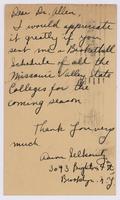 Dear Dr. Allen,
I would appreciate
it greatly if you
sent me a Basketball
Schedule of all the
Missouri Valley State
Colleges for the
coming season
Thank you very
much
Aaron
3093 Brighton
Brooklyn N.Y